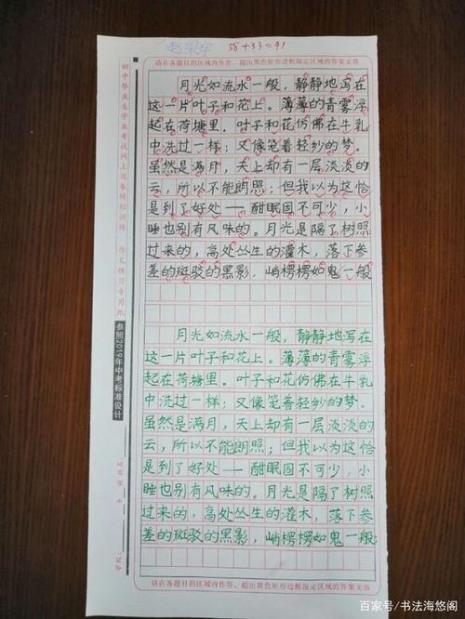 58+33=91
请在各题目的区域内作答，超出黑色矩形边框限定区域的答案无效
月光如流水一般，静静地泻在
这一片叶子和花上。薄薄的青雾浮
起在荷塘里。叶子和花仿佛在牛乳
中洗过一样；又像笼着轻纱的梦。
虽然是满月，天上却有一层淡淡的
云，所以不能朗照；但我以为这恰
是到了好处——酣眠固不可少，小
睡也别有风味的。月光是隔了树照
过来的，高处丛生的灌木，落下参
差的斑驳的黑影，峭楞楞如鬼一般
月光如流水一般，静静地泻在
这一片叶子和花上。薄薄的青雾浮
起在荷塘里。叶子和花仿佛在牛乳
中洗过一样；又像笼着轻纱的梦。
虽然是满月，天上却有一层淡淡的
云，所以不能朗照；但我以为这恰
是到了好处——酣眠固不可少，小
睡也别有风味的。月光是隔了树照
过来的，高处丛生的灌木，落下参
差的斑驳的黑影，峭楞楞如鬼一般
请在各题目的区域内作答，超出黑色矩形边框限定区域的答案无效
参照2019年中考标准设计
百家号/书法海悠阁